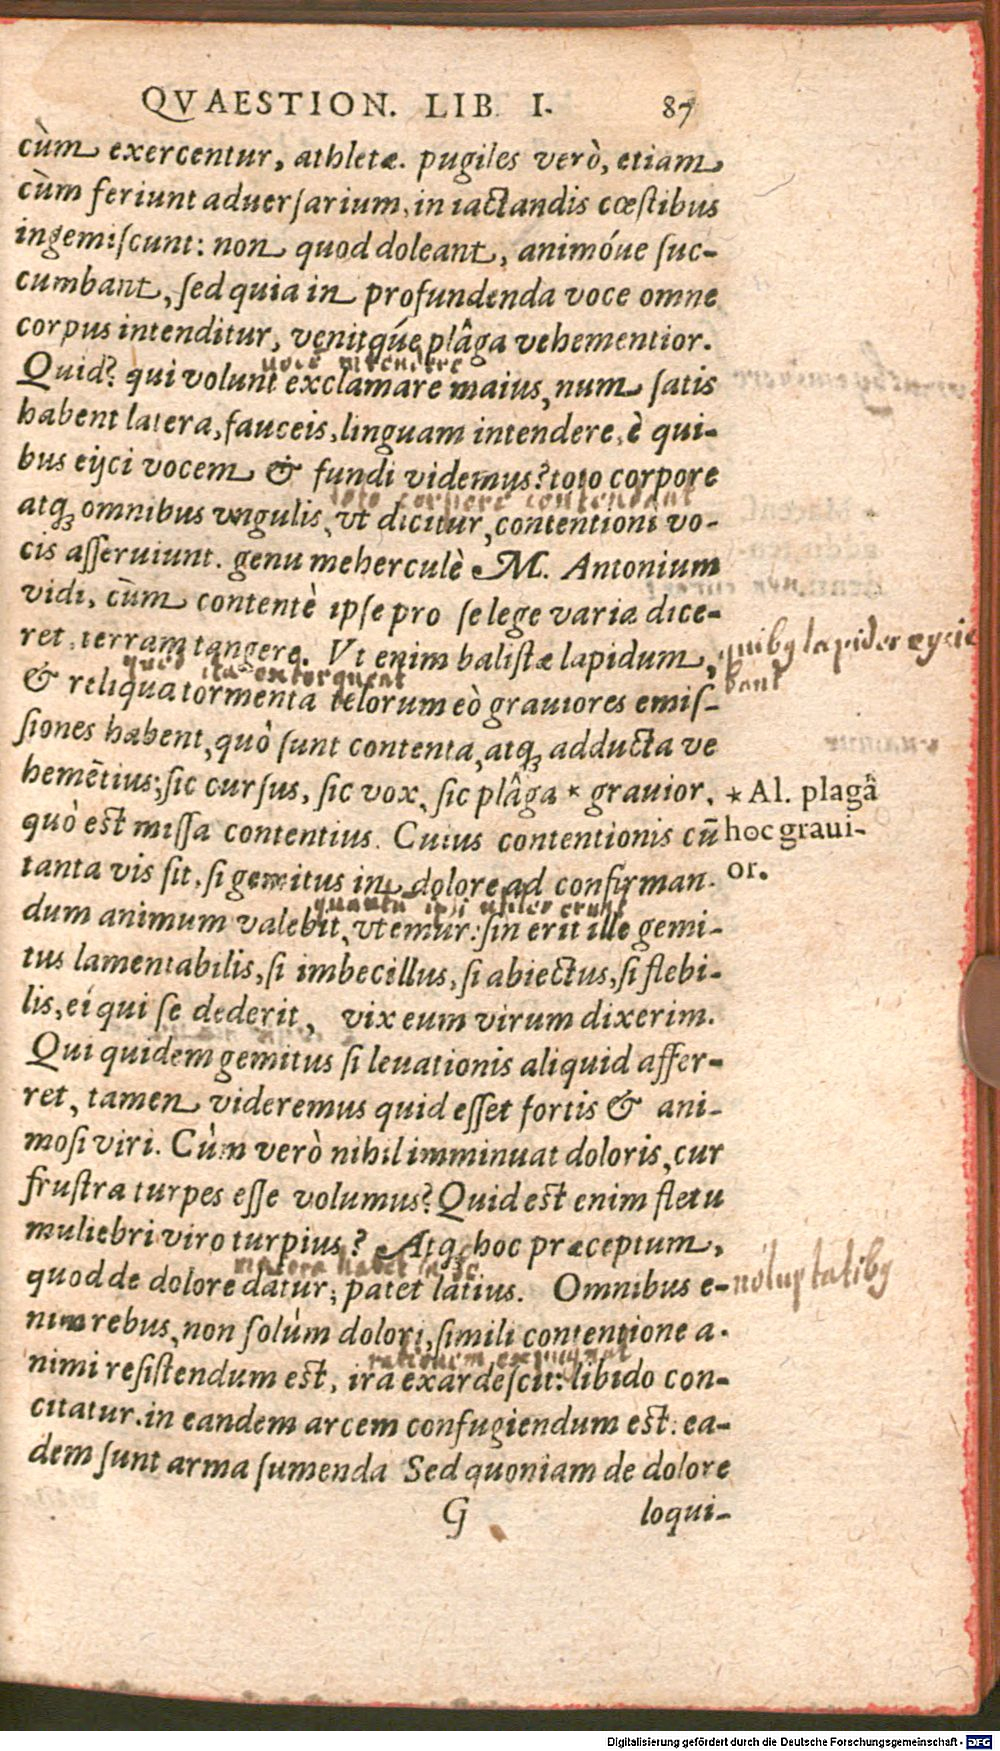 QVAESTION. LIB. I. 87
cùm exercentur, athletæ. pugiles verò, etiam
cùm feriunt aduersarium, in iactandis cœstibus
ingemiscunt: non quod doleant, animóue suc-
cumbant, sed quia in profundenda voce omne
corpus intenditur, venitq́ue plâga vehementior.
Quid? qui volunt exclamare maius, num satis
habent latera, fauceis, linguam intendere, è qui-
bus eijci vocem & fundi videmus? toto corpore
toto corpore contendant
atq; omnibus vngulis, vt dicitur, contentioni vo-
cis asseruiunt. genu meherculè M. Antonium
vidi, cùm contentè ipse pro se lege varia dice-
ret, terram tangere. Vt enim balistæ lapidum,
quibꝰ lapides eycie
bant
& reliqua tormenta telorum eò grauiores emis-
siones habent, quò sunt contenta, atq; adducta ve
hemētius: sic cursus, sic vox, sic plâga * grauior,
* Al. plagā
quò est missa contentius. Cuius contentionis cū
hoc graui-
tanta vis sit, si gemitus in dolore ad confirman-
or.
dum animum valebit, vtemur: sin erit ille gemi-
tus lamentabilis, si imbecillus, si abiectus, si flebi-
lis, ei qui se dederit, vix eum virum dixerim.
Qui quidem gemitus si leuationis aliquid affer-
ret, tamen videremus quid esset fortis & ani-
mosi viri. Cùm verò nihil imminuat doloris, cur
frustra turpes esse volumus? Quid est enim fletu
muliebri viro turpius? Atq; hoc præceptum,
quod de dolore datur, patet latius. Omnibus e-
uoluptatibꝰ
nim rebus, non solùm dolori, simili contentione a-
nimi resistendum est, ira exardescit: libido con-
citatur. in eandem arcem confugiendum est: ea-
dem sunt arma sumenda Sed quoniam de dolore
G loqui-
Digitalisierung gefördert durch die Deutsche Forschungsgemeinschaft - DFG